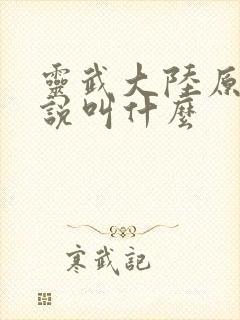 靈武大陸原
說叫什麼
寒武記